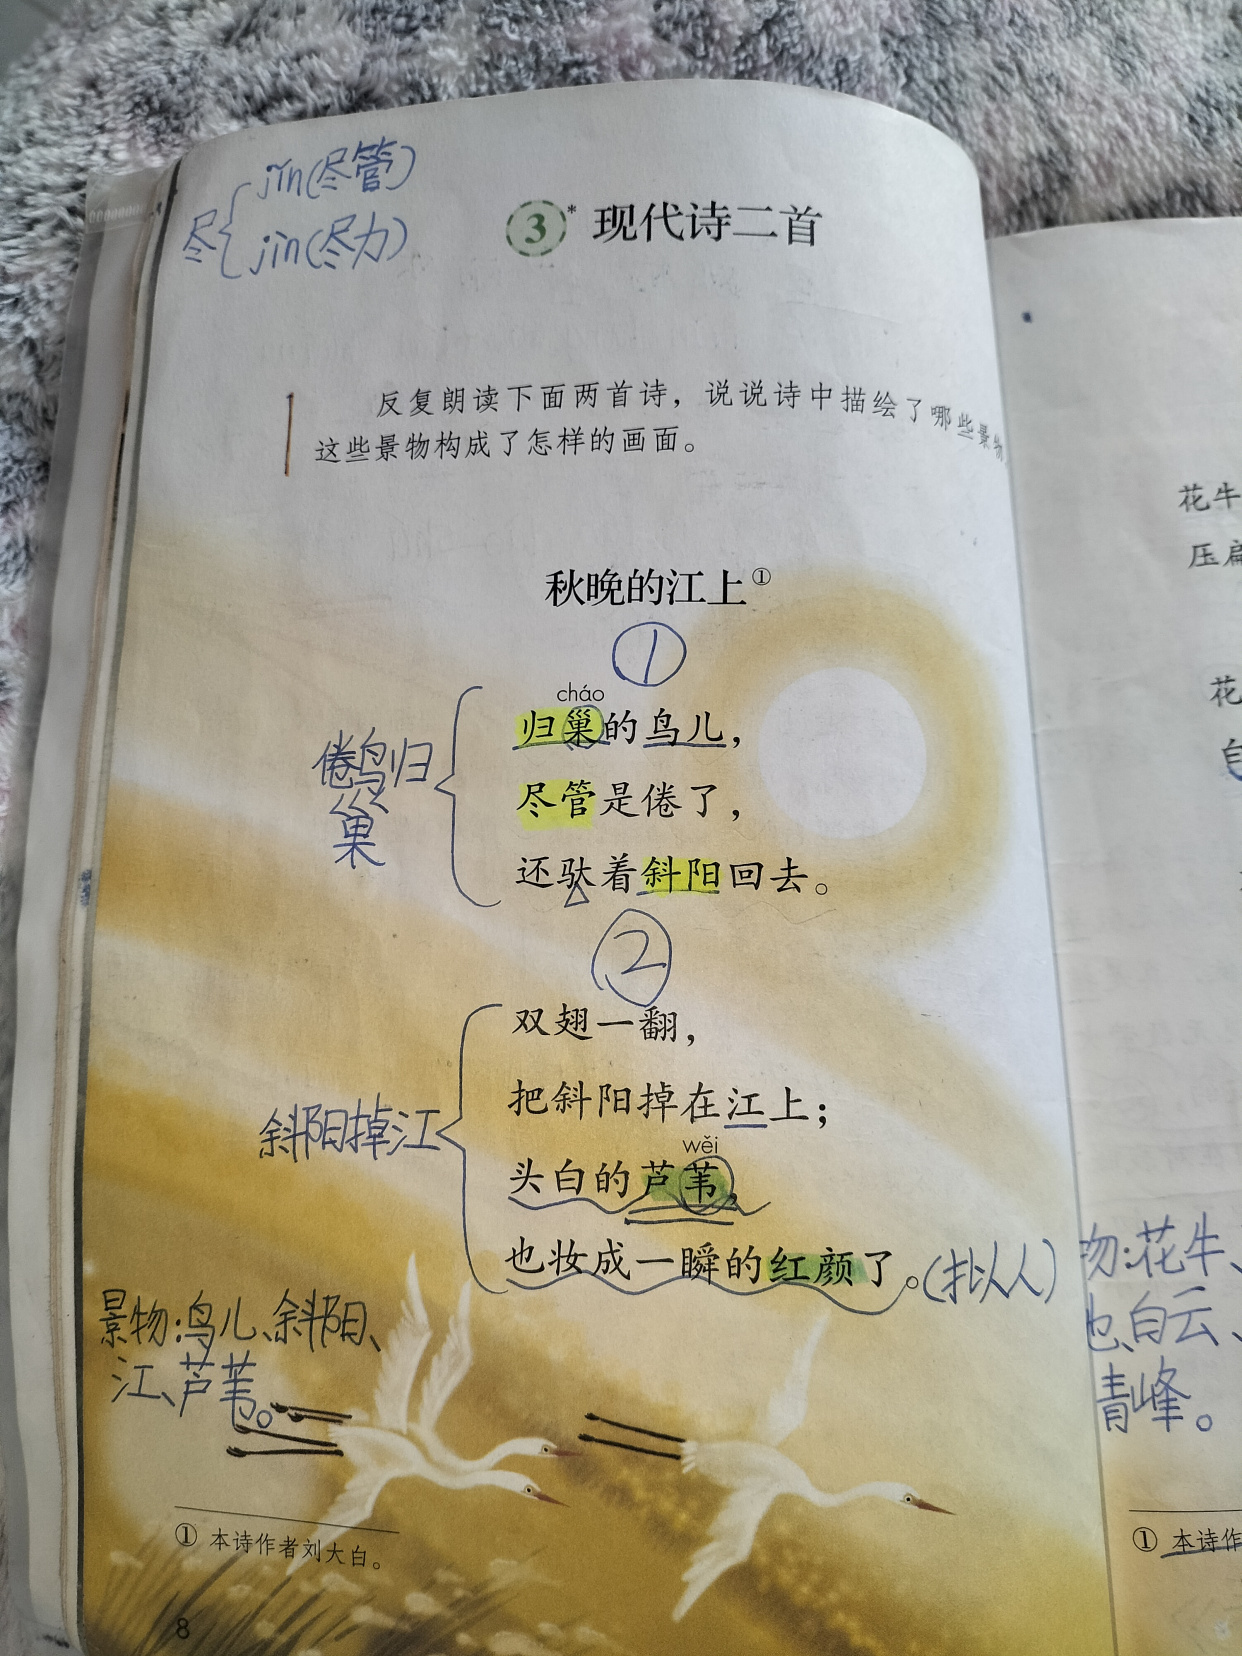 尽
jǐn(尽管)
jìn(尽力)
3* 现代诗二首
反复朗读下面两首诗，说说诗中描绘了哪些景物
这些景物构成了怎样的画面。
秋晚的江上①
①
cháo
归巢的鸟儿，
尽管是倦了，
还驮着斜阳回去。
倦鸟归
巢
②
双翅一翻，
把斜阳掉在江上；
wěi
头白的芦苇，
也妆成一瞬的红颜了。(拟人)
斜阳掉江
景物:鸟儿、斜阳、
江、芦苇。
① 本诗作者刘大白。
8
花牛
压扁
花
自
物:花牛、
白云、
青峰。
① 本诗作